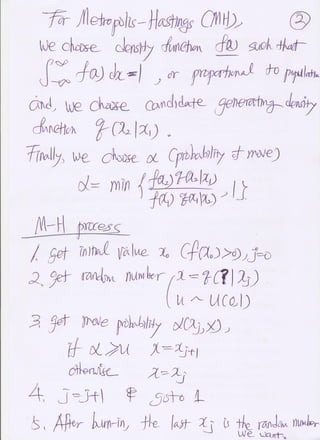 For Metropolis-Hastings (MH), ②
we choose density function f(x) such that
∫_{-∞}^{∞} f(x) dx = 1 , or proportional to population
and, we choose candidate generating density
function q(x₂|x₁).
Finally, we choose α (probability of move)
α = min { f(x₂) q(x₂|x₁) / f(x₁) q(x₁|x₂) , 1 }.
M-H process
1. get initial value x₀ (f(x₀)>0), j=0
2. get random number ( x = q(?|xⱼ)
u ~ U(0,1)
3. get move probability α(xⱼ,x),
if α ≥ u x = xⱼ₊₁
otherwise x = xⱼ
4. j=j+1 & goto 1
5. After burn-in, the last xⱼ is the random number
we want.